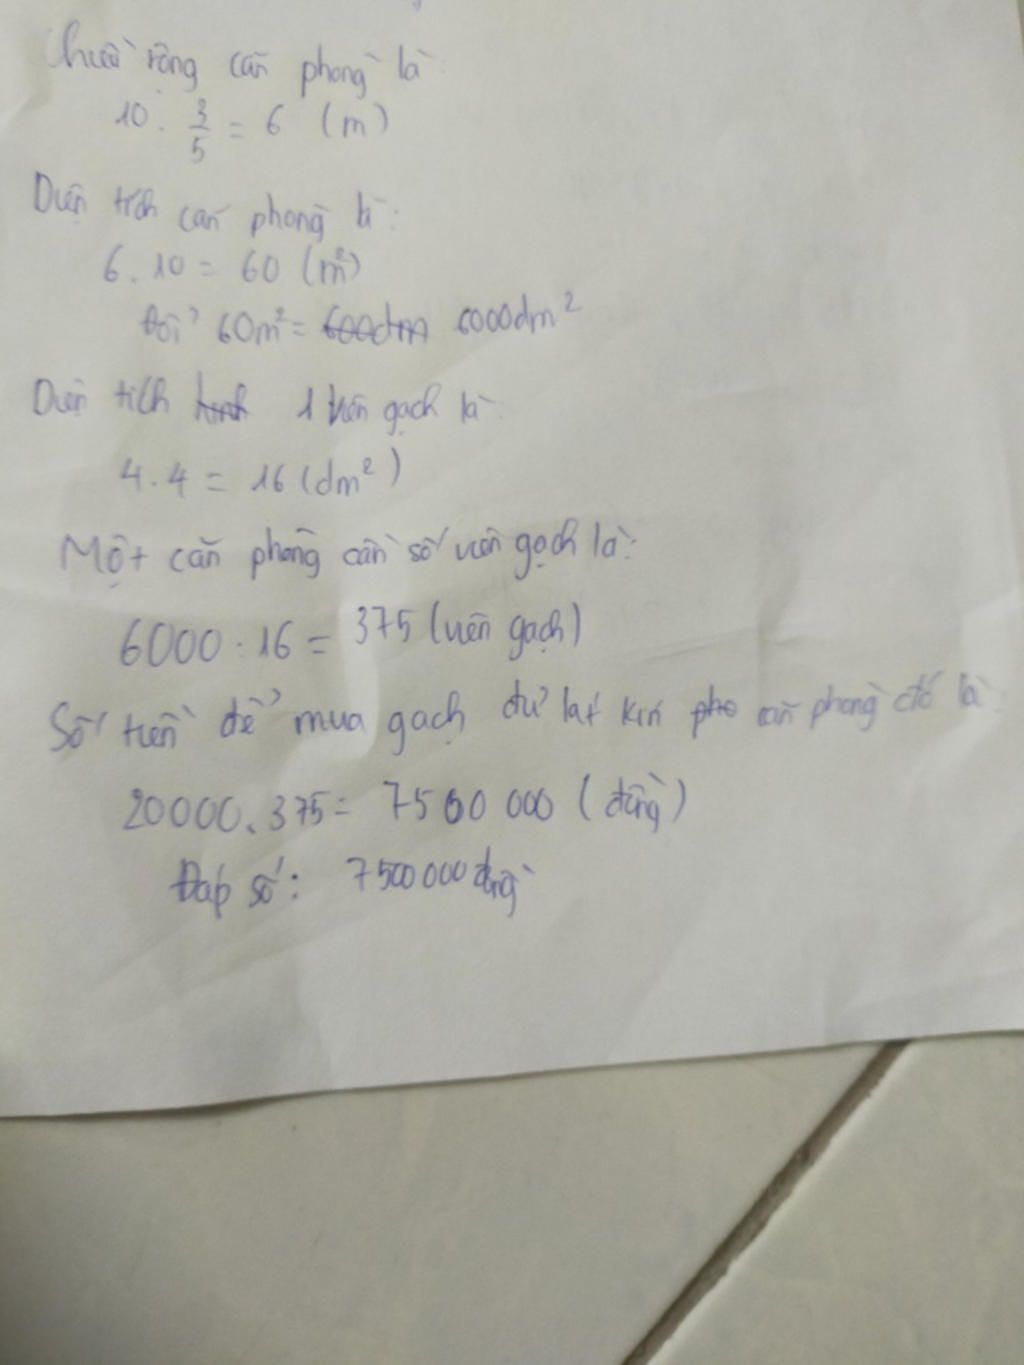 Chiều rộng căn phòng là:
10 . 3/5 = 6 (m)
Diện tích căn phòng là:
6 . 10 = 60 (m²)
Đổi 60m² = 600dm 6000dm²
Diện tích hình 1 viên gạch là:
4 . 4 = 16 (dm²)
Một căn phòng cần số viên gạch là:
6000 : 16 = 375 (viên gạch)
Số tiền để mua gạch đủ lát kín pho căn phòng đó là:
20000 . 375 = 7500 000 (đồng)
Đáp số: 7500 000 đồng